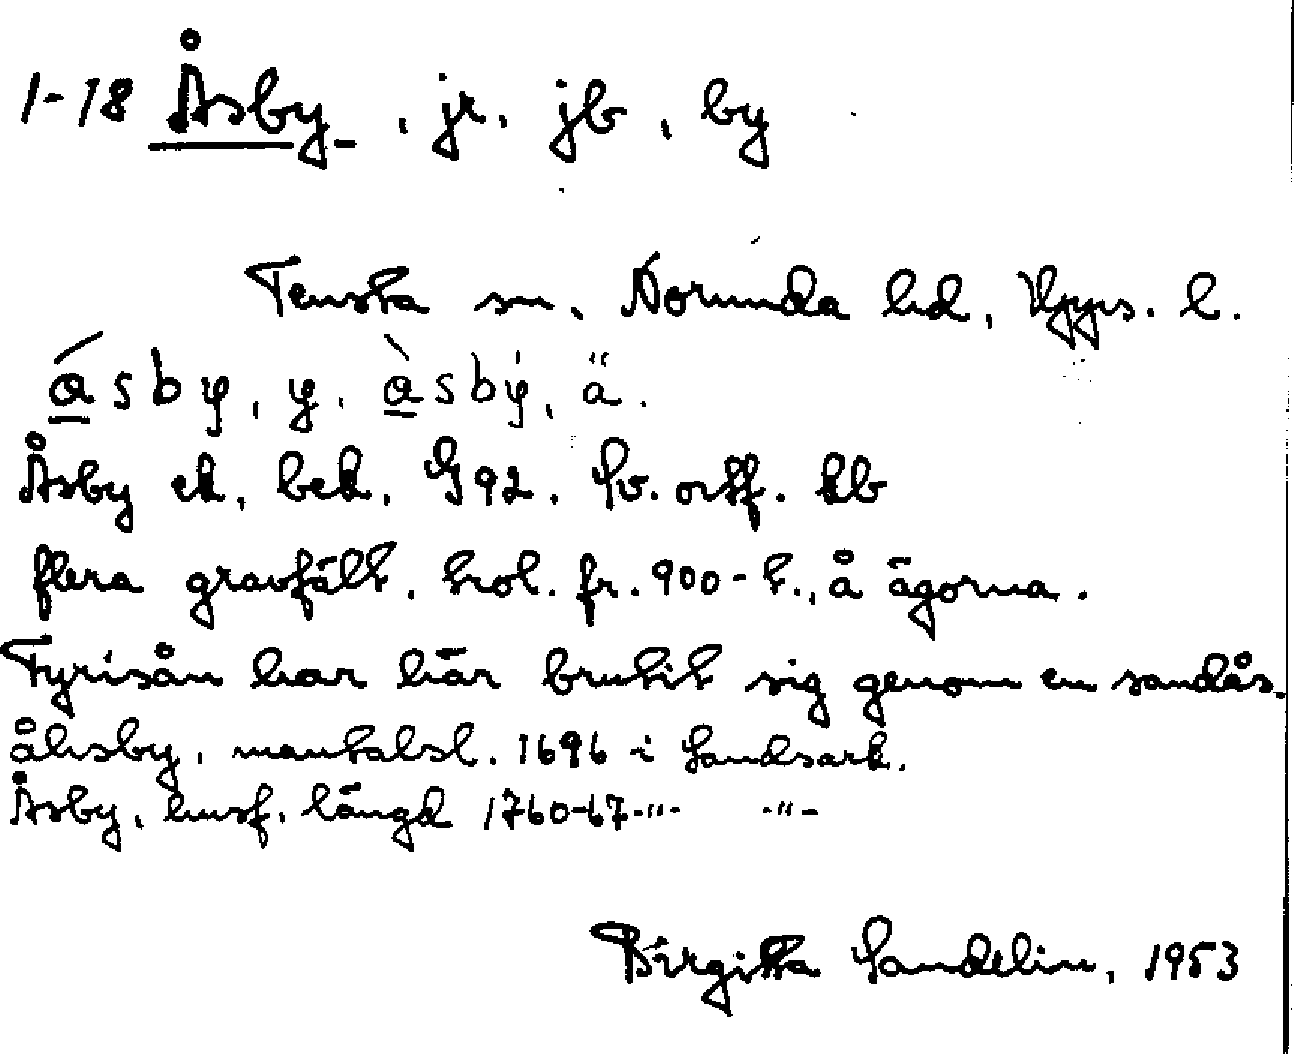 1-18 Åsby, jr, jb, by
Tensta sn, Norunda hd, Upps. l.
åsby, y, åsby, ä.
Åsby ek, bek, G92. Sv. ortf. kb
flera gravfält, trol. fr. 900-t., å ägorna.
Fyrisån har här brutit sig genom en sandås.
åhsby, mantalsl. 1696 i Landsark.
Åsby, husf. längd 1760-67-"- -"-
Birgitta Sandelin, 1953